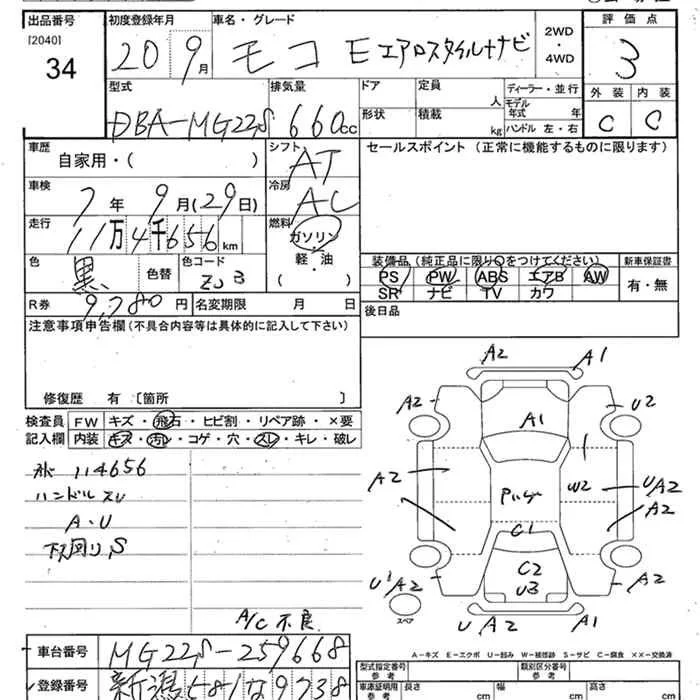 出品番号 初度登録年月 車名・グレード 2WD・4WD 評価点
[2040]
34 20 9月 モコ E エアロスタイル+ナビ 3
型式 排気量 ドア 定員 人 ディーラー・並行 外装 内装
モデル年式 年
DBA-MG22S 660cc 形状 積載 kg ハンドル 左・右 C C
車歴 シフト セールスポイント (正常に機能するものに限ります)
自家用・( ) AT
車検 冷房
7年 9月(29日) AC
走行 燃料
11万4千656km ガソリン・軽油 ( )
色 黒 色替 色コード ZJ3
装備品(純正品に限り○をつけてください) 新車保証書
PS PW ABS エアB AW 有・無
SR ナビ TV カワ
R券 9,780円 名変期限 月 日
後日品
注意事項申告欄(不具合内容等は具体的に記入して下さい)
修復歴 有 [箇所 ]
検査員記入欄 FW キズ・飛石・ヒビ割・リペア跡・×要
内装 キズ・汚れ・コゲ・穴・スレ・キレ・破レ
114656
ハンドルスレ
A・U
下回りS
A/C不良
A2 A1
A2 A1 U2
A2 W2 UA2
A2
C1
C2
U3
U1A2 A2
スペア
U A2 A1
A-キズ E-エクボ U-凹み W-補修跡 S-サビ C-腐食 XX-交換済
車台番号 MG22S-259668
型式指定番号 参考 類別区分番号 参考
登録番号 新潟581な9738
車庫証明用 参考 長さ cm 幅 cm 高さ cm